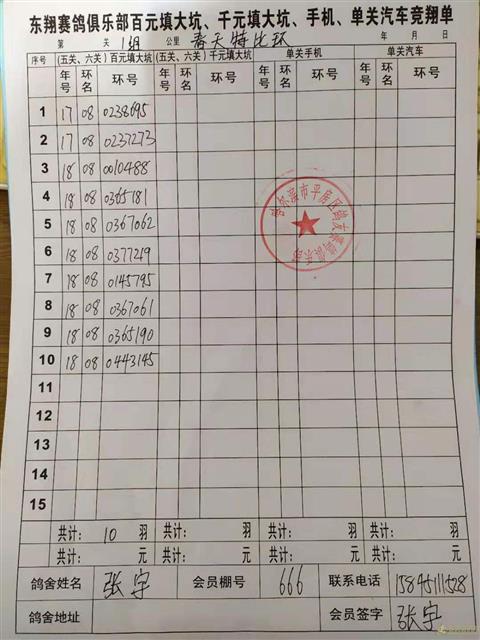 东翔赛鸽俱乐部百元填大坑、千元填大坑、手机、单关汽车竞翔单
第 关 1组 公里 春天特比环 年 月 日
序号 (五关、六关)百元填大坑 (五关、六关)千元填大坑 单关手机 单关汽车
年号 环名 环号 年号 环名 环号 年号 环名 环号 年号 环名 环号
1 17 08 0238695
2 17 08 0237273
3 18 08 0010488
4 18 08 0365181
5 18 08 0367062
6 18 08 0377219
7 18 08 0145795
8 18 08 0367061
9 18 08 0365190
10 18 08 0443145
11
12
13
14
15
共计: 10 羽 共计: 羽 共计: 羽 共计: 羽
共计: 元 共计: 元 共计: 元 共计: 元
鸽舍姓名 张宇 会员棚号 666 联系电话 15845111528
鸽舍地址 会员签字 张宇